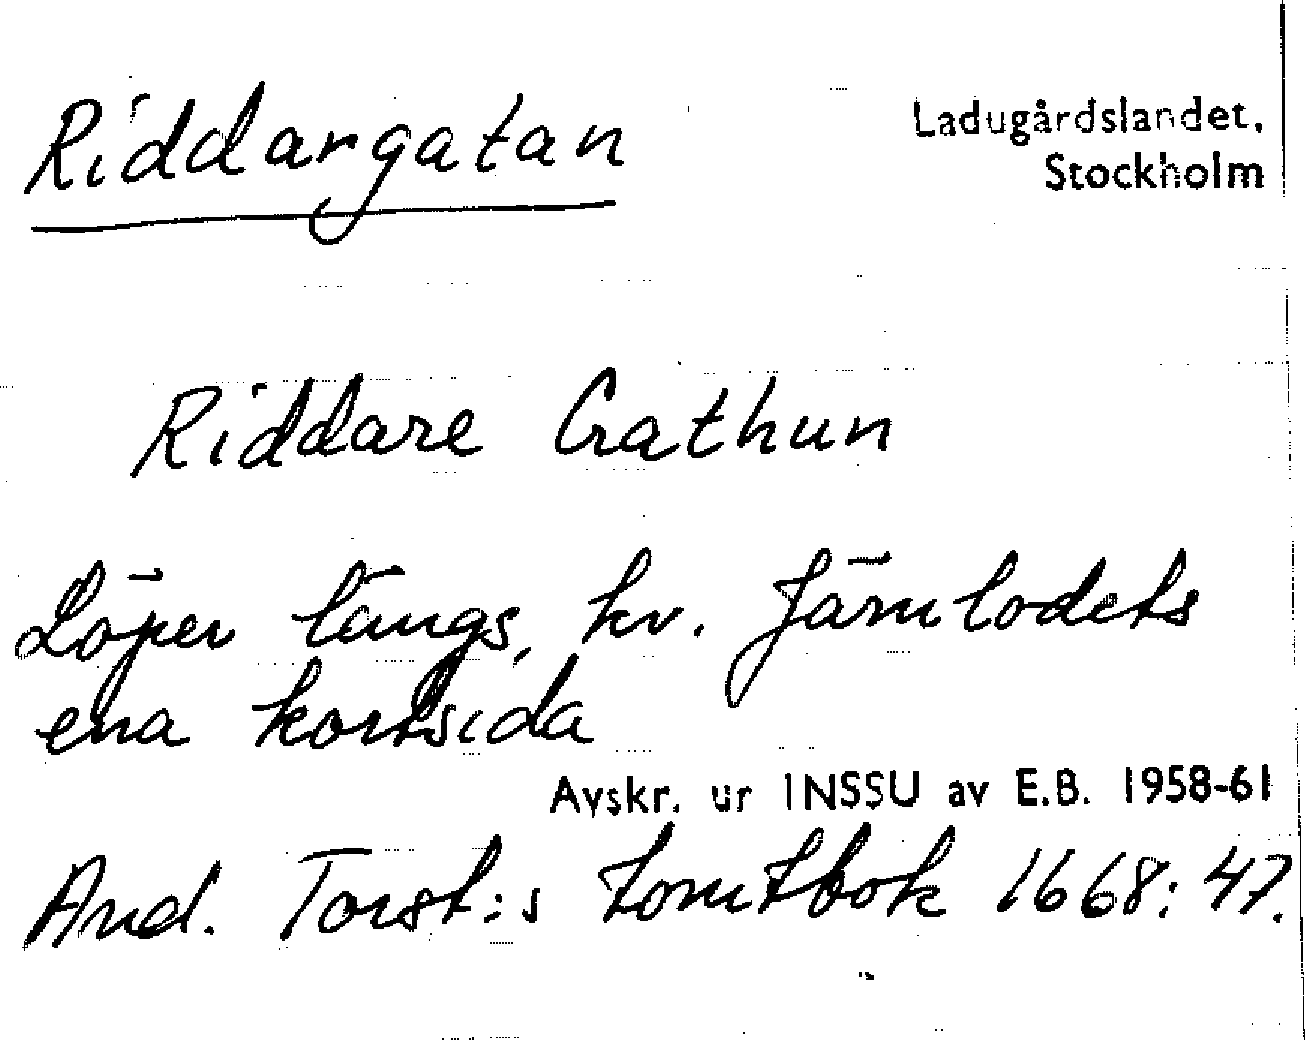 Riddargatan
Ladugårdslandet,
Stockholm
Riddare Gathun
Löper längs, kv. Järnlodets
ena kortsida
Avskr. ur INSSU av E.B. 1958-61
And. Torst:s tomtbok 1668: 47.